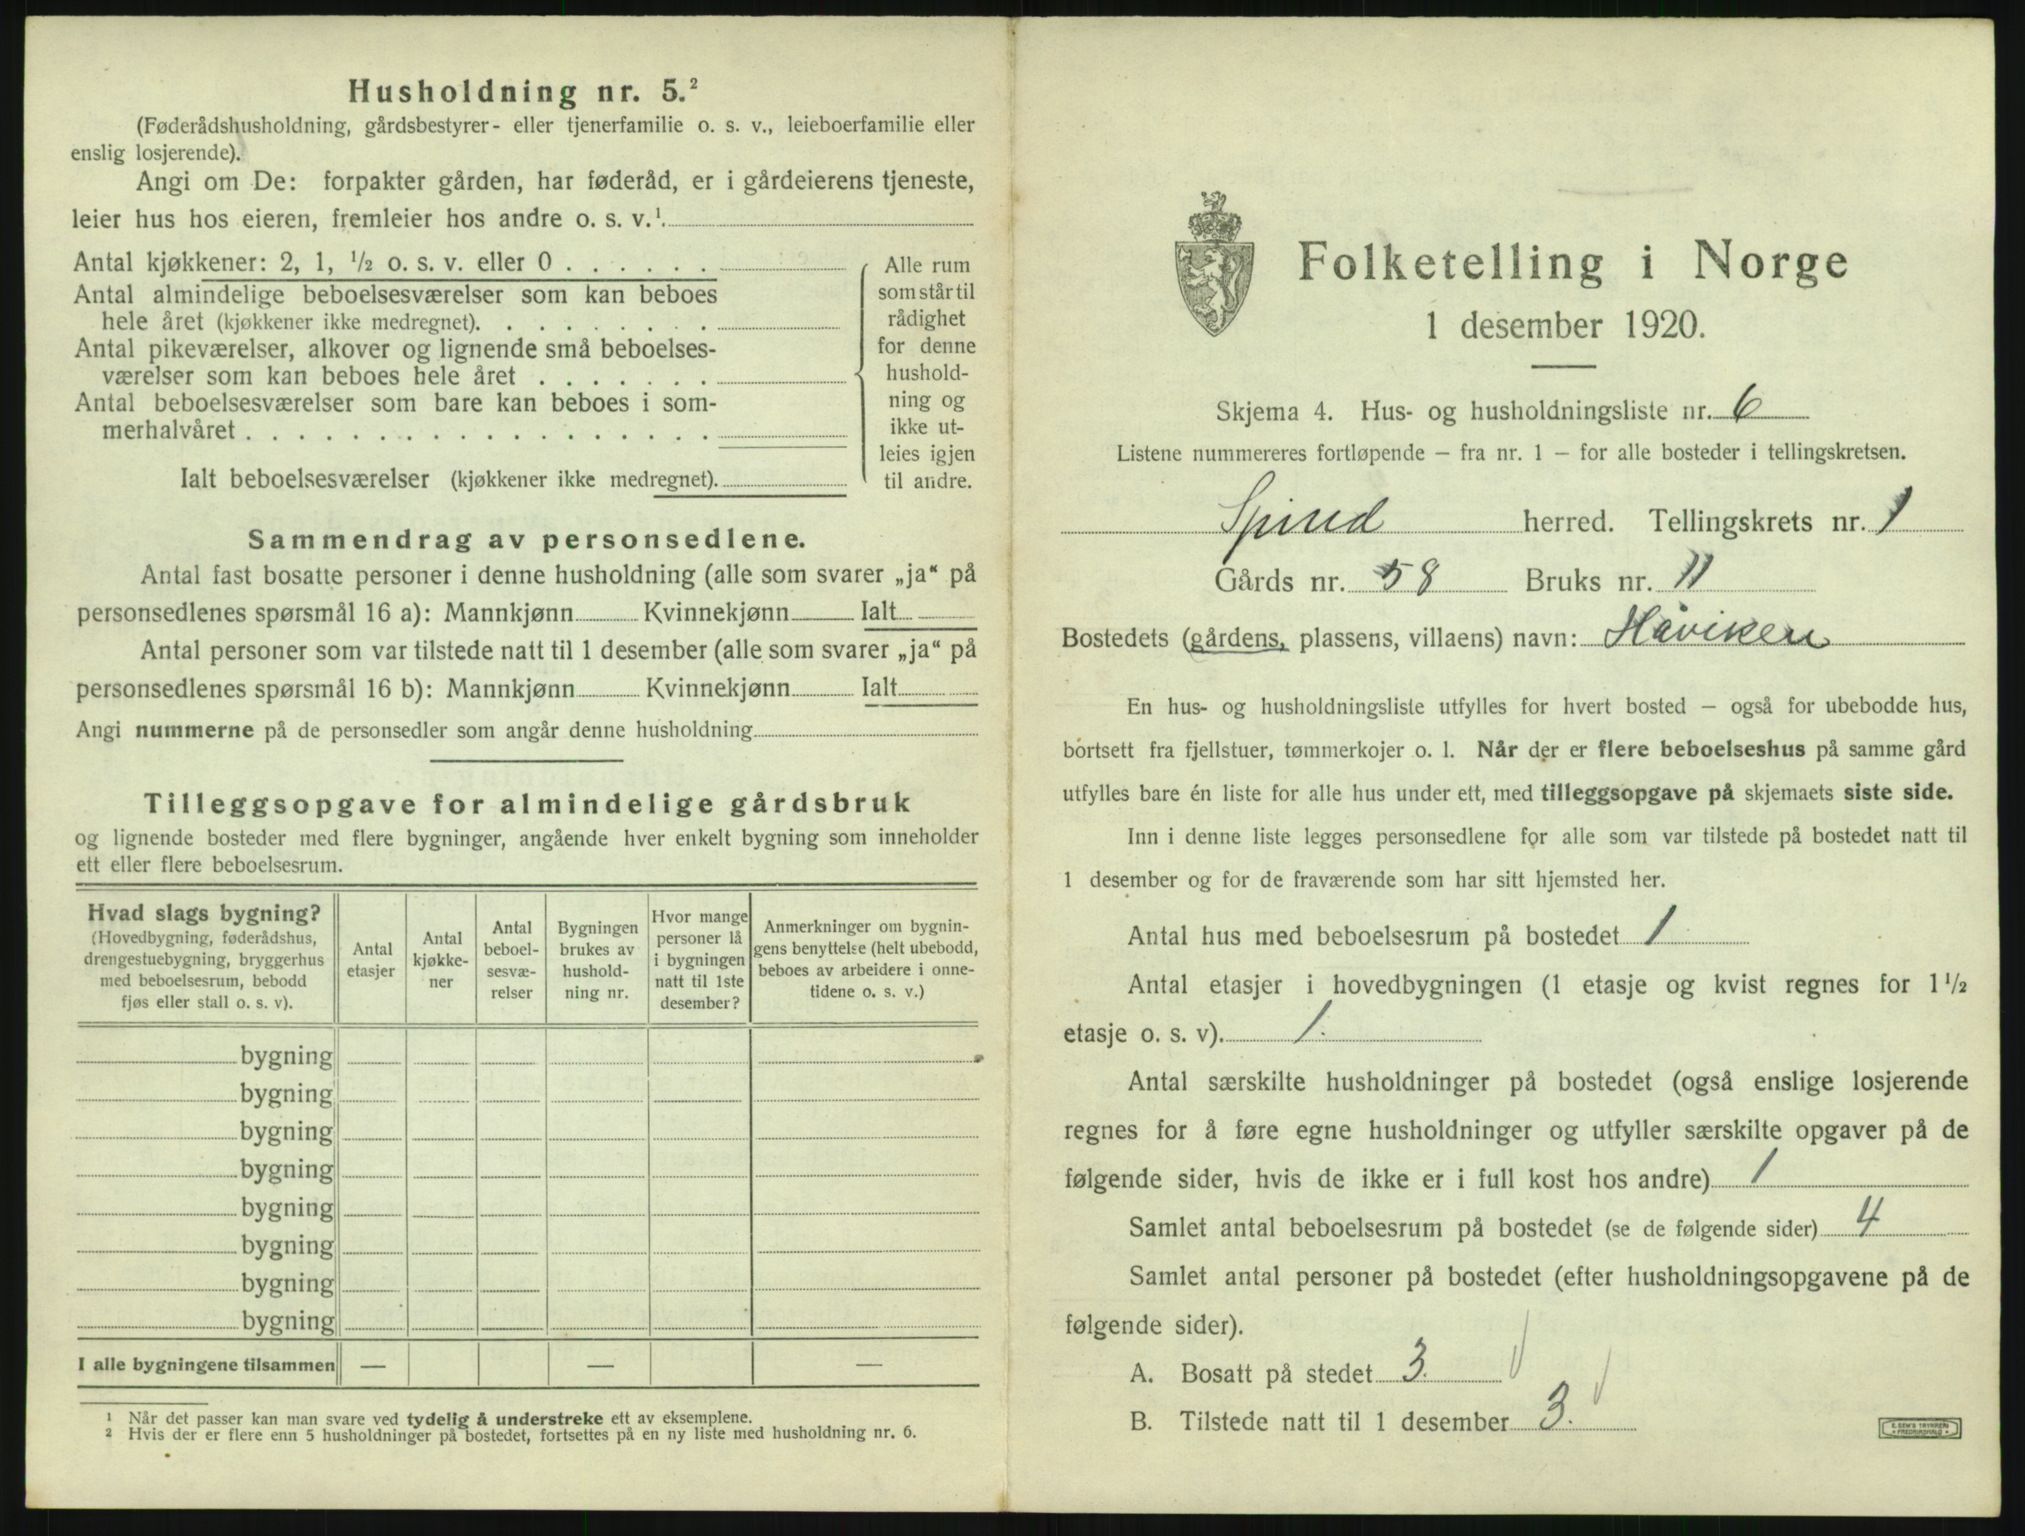 Husholdning nr. 5.²
(Føderådshusholdning, gårdsbestyrer- eller tjenerfamilie o. s. v., leieboerfamilie eller
enslig losjerende).
Angi om De: forpakter gården, har føderåd, er i gårdeierens tjeneste,
leier hus hos eieren, fremleier hos andre o. s. v.¹.
Antal kjøkkener: 2, 1, ½ o. s. v. eller 0
Antal almindelige beboelsesværelser som kan beboes
hele året (kjøkkener ikke medregnet).
Antal pikeværelser, alkover og lignende små beboelses-
værelser som kan beboes hele året
Antal beboelsesværelser som bare kan beboes i som-
merhalvåret
Ialt beboelsesværelser (kjøkkener ikke medregnet).
Alle rum
som står til
rådighet
for denne
hushold-
ning og
ikke ut-
leies igjen
til andre.
Sammendrag av personsedlene.
Antal fast bosatte personer i denne husholdning (alle som svarer „ja“ på
personsedlenes spørsmål 16 a): Mannkjønn Kvinnekjønn Ialt
Antal personer som var tilstede natt til 1 desember (alle som svarer „ja“ på
personsedlenes spørsmål 16 b): Mannkjønn Kvinnekjønn Ialt
Angi nummerne på de personsedler som angår denne husholdning
Tilleggsopgave for almindelige gårdsbruk
og lignende bosteder med flere bygninger, angående hver enkelt bygning som inneholder
ett eller flere beboelsesrum.
Hvad slags bygning?
(Hovedbygning, føderådshus,
drengestuebygning, bryggerhus
med beboelsesrum, bebodd
fjøs eller stall o. s. v).
Antal
etasjer
Antal
kjøkke-
ner
Antal
beboel-
sesvæ-
relser
Bygningen
brukes av
hushold-
ning nr.
Hvor mange
personer lå
i bygningen
natt til 1ste
desember?
Anmerkninger om bygnin-
gens benyttelse (helt ubebodd,
beboes av arbeidere i onne-
tidene o. s. v.)
bygning
bygning
bygning
bygning
bygning
bygning
bygning
bygning
I alle bygningene tilsammen — — —
¹ Når det passer kan man svare ved tydelig å understreke ett av eksemplene.
² Hvis der er flere enn 5 husholdninger på bostedet, fortsettes på en ny liste med husholdning nr. 6.
Folketelling i Norge
1 desember 1920.
Skjema 4. Hus- og husholdningsliste nr. 6
Listene nummereres fortløpende – fra nr. 1 – for alle bosteder i tellingskretsen.
Spind herred. Tellingskrets nr. 1
Gårds nr. 58 Bruks nr. 11
Bostedets (gårdens, plassens, villaens) navn: Håviken
En hus- og husholdningsliste utfylles for hvert bosted – også for ubebodde hus,
bortsett fra fjellstuer, tømmerkojer o. l. Når der er flere beboelseshus på samme gård
utfylles bare én liste for alle hus under ett, med tilleggsopgave på skjemaets siste side.
Inn i denne liste legges personsedlene for alle som var tilstede på bostedet natt til
1 desember og for de fraværende som har sitt hjemsted her.
Antal hus med beboelsesrum på bostedet 1
Antal etasjer i hovedbygningen (1 etasje og kvist regnes for 1½
etasje o. s. v). 1.
Antal særskilte husholdninger på bostedet (også enslige losjerende
regnes for å føre egne husholdninger og utfyller særskilte opgaver på de
følgende sider, hvis de ikke er i full kost hos andre) 1
Samlet antal beboelsesrum på bostedet (se de følgende sider) 4
Samlet antal personer på bostedet (efter husholdningsopgavene på de
følgende sider).
A. Bosatt på stedet 3.
B. Tilstede natt til 1 desember 3.
E. SEM'S TRYKKERI
FREDRIKSHALD